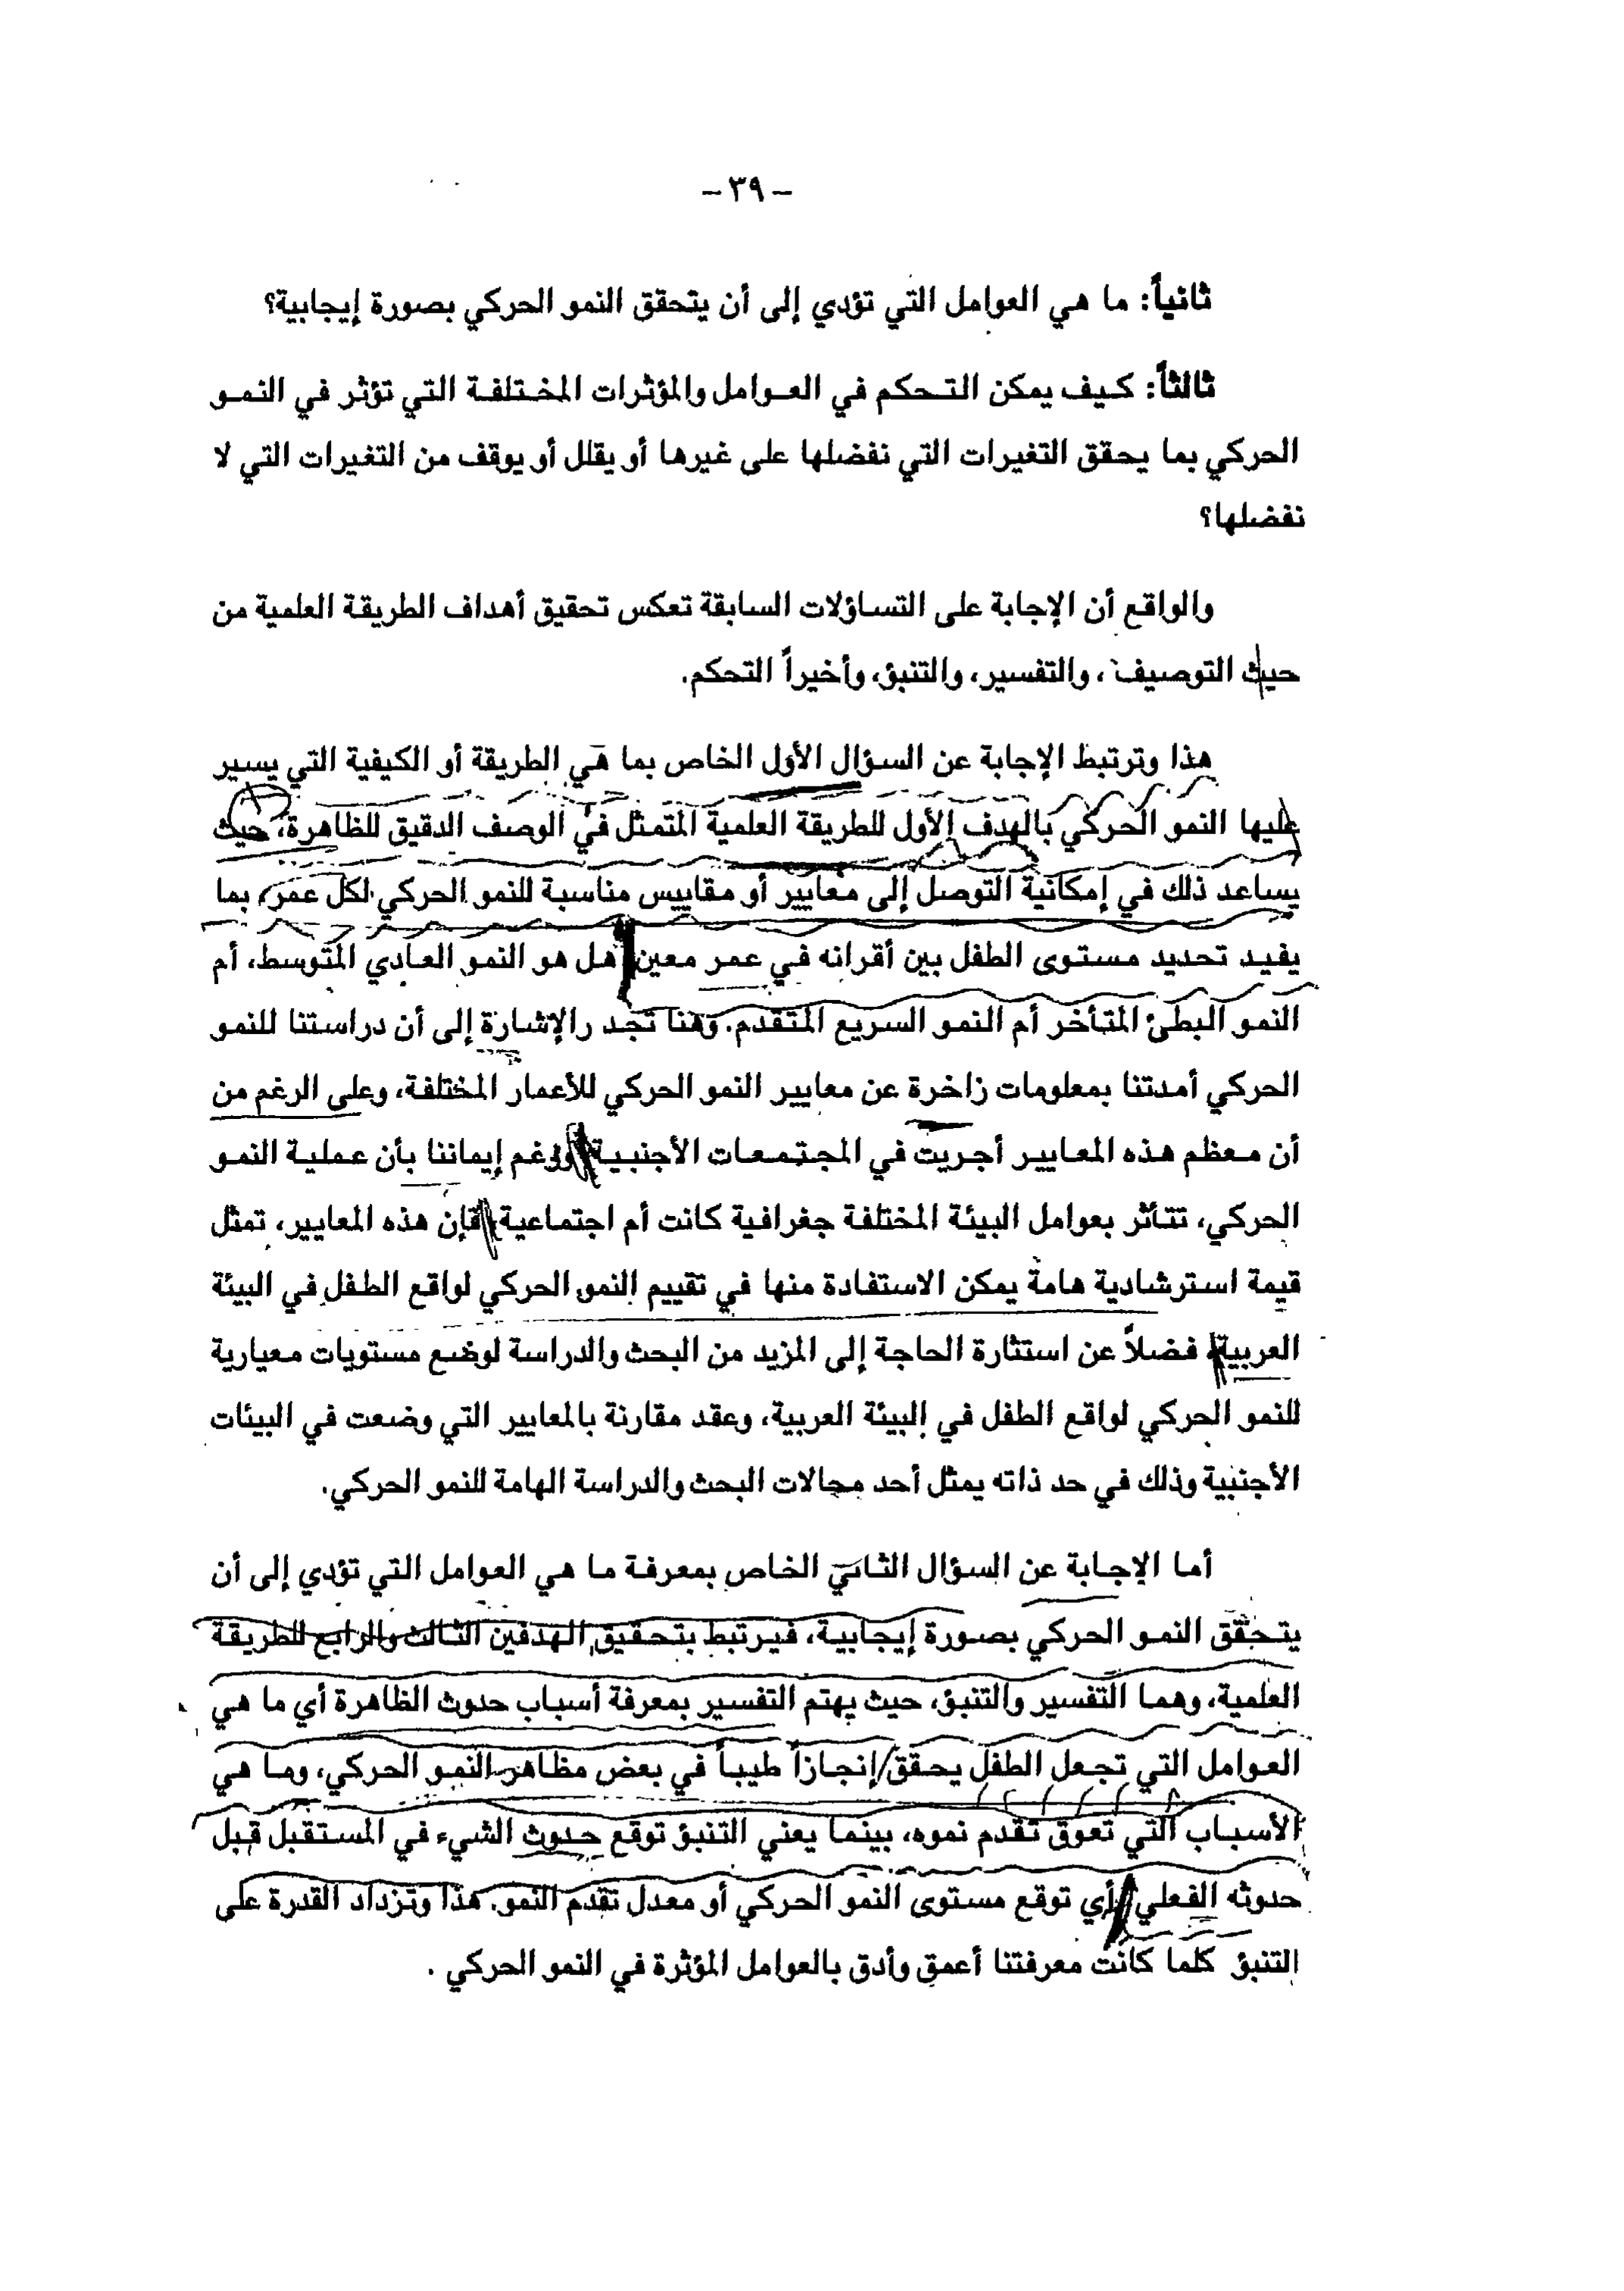 – ٣٩ –
ثانياً: ما هي العوامل التي تؤدي إلى أن يتحقق النمو الحركي بصورة إيجابية؟
ثالثاً: كيف يمكن التحكم في العوامل والمؤثرات المختلفة التي تؤثر في النمو
الحركي بما يحقق التغيرات التي نفضلها على غيرها أو يقلل أو يوقف من التغيرات التي لا
نفضلها؟
والواقع أن الإجابة على التساؤلات السابقة تعكس تحقيق أهداف الطريقة العلمية من
حيث التوصيف، والتفسير، والتنبؤ، وأخيراً التحكم.
هذا وترتبط الإجابة عن السؤال الأول الخاص بما هي الطريقة أو الكيفية التي يسير
عليها النمو الحركي بالهدف الأول للطريقة العلمية المتمثل في الوصف الدقيق للظاهرة، حيث
يساعد ذلك في إمكانية التوصل إلى معايير أو مقاييس مناسبة للنمو الحركي لكل عمر، بما
يفيد تحديد مستوى الطفل بين أقرانه في عمر معين هل هو النمو العادي المتوسط، أم
النمو البطئ المتأخر أم النمو السريع المتقدم. وهنا تجد رالإشارة إلى أن دراستنا للنمو
الحركي أمدتنا بمعلومات زاخرة عن معايير النمو الحركي للأعمار المختلفة، وعلى الرغم من
أن معظم هذه المعايير أجريت في المجتمعات الأجنبية ورغم إيماننا بأن عملية النمو
الحركي، تتأثر بعوامل البيئة المختلفة جغرافية كانت أم اجتماعية، فإن هذه المعايير، تمثل
قيمة استرشادية هامة يمكن الاستفادة منها في تقييم النمو الحركي لواقع الطفل في البيئة
العربية، فضلاً عن استثارة الحاجة إلى المزيد من البحث والدراسة لوضع مستويات معيارية
للنمو الحركي لواقع الطفل في البيئة العربية، وعقد مقارنة بالمعايير التي وضعت في البيئات
الأجنبية وذلك في حد ذاته يمثل أحد مجالات البحث والدراسة الهامة للنمو الحركي.
أما الإجابة عن السؤال الثاني الخاص بمعرفة ما هي العوامل التي تؤدي إلى أن
يتحقق النمو الحركي بصورة إيجابية، فيرتبط بتحقيق الهدفين الثالث والرابع للطريقة
العلمية، وهما التفسير والتنبؤ، حيث يهتم التفسير بمعرفة أسباب حدوث الظاهرة أي ما هي
العوامل التي تجعل الطفل يحقق إنجازاً طيباً في بعض مظاهر النمو الحركي، وما هي
الأسباب التي تعوق تقدم نموه، بينما يعني التنبؤ توقع حدوث الشيء في المستقبل قبل
حدوثه الفعلي أي توقع مستوى النمو الحركي أو معدل تقدم النمو. هذا وتزداد القدرة على
التنبؤ كلما كانت معرفتنا أعمق وأدق بالعوامل المؤثرة في النمو الحركي .